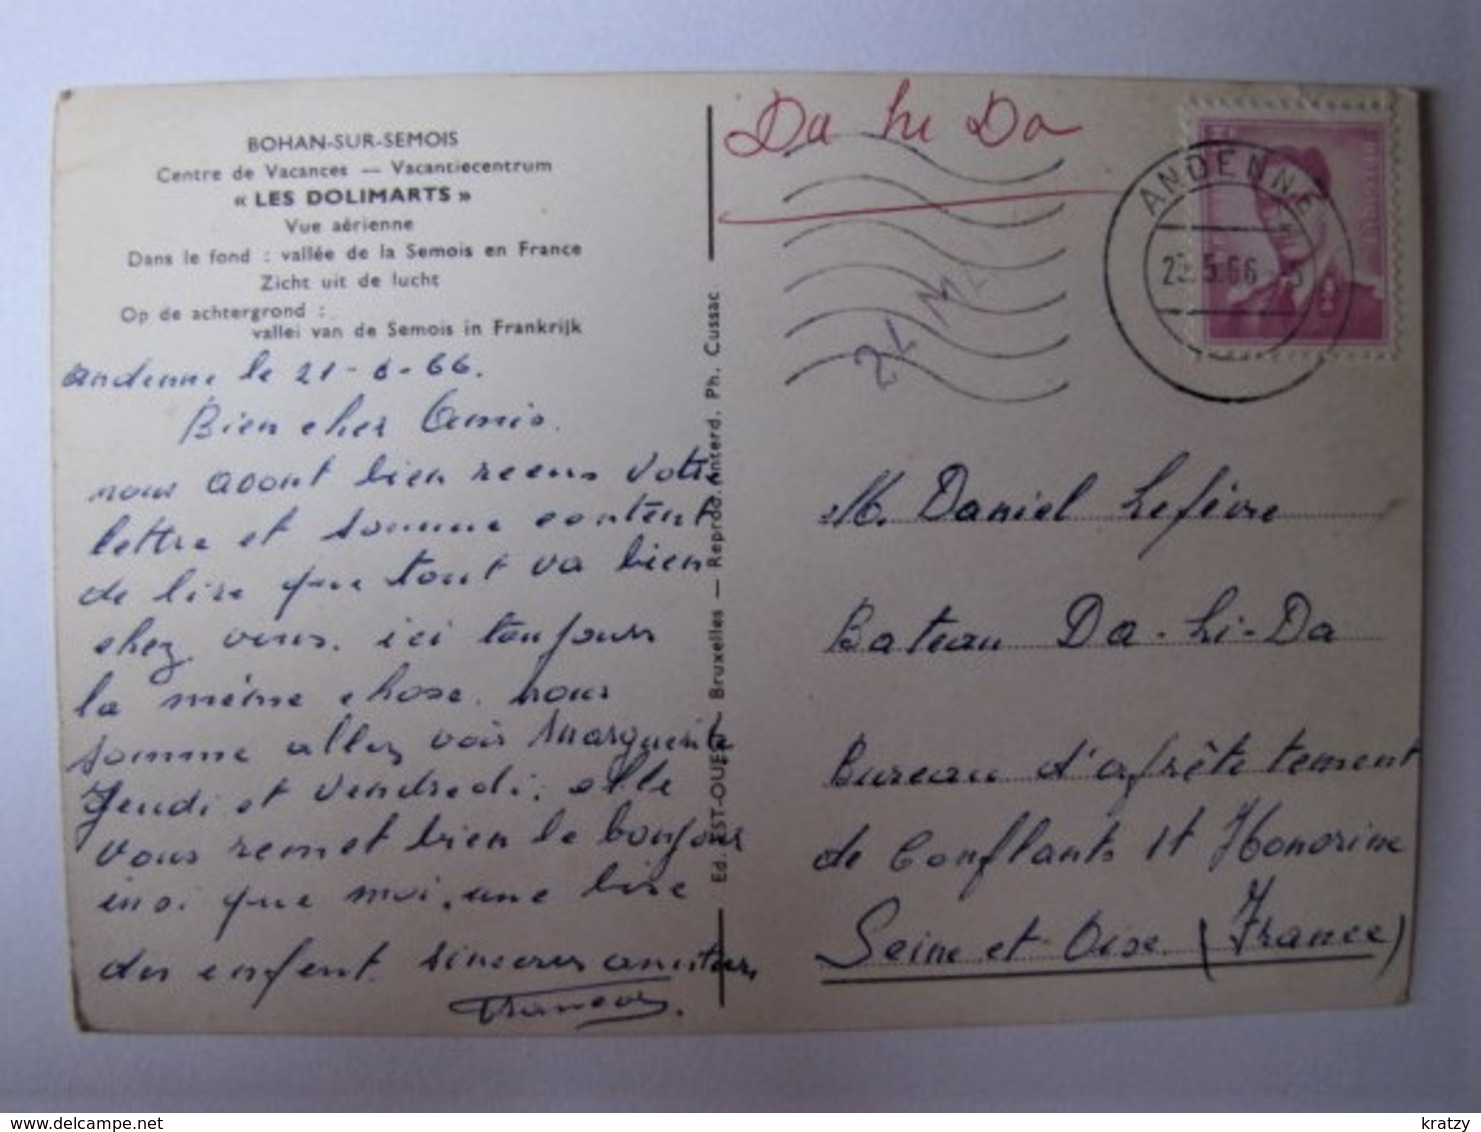 BOHAN-SUR-SEMOIS
Centre de Vacances — Vacantiecentrum
« LES DOLIMARTS »
Vue aérienne
Dans le fond : vallée de la Semois en France
Zicht uit de lucht
Op de achtergrond :
vallei van de Semois in Frankrijk
andenne le 21-6-66.
Bien cher Amis.
nous avont bien reens votre
lettre et somme content
de lire que tout va bien
chez vous. ici toujours
la même chose. nous
somme allez voir Marguerite
Jeudi et Vendredi, elle
vous remet bien le bonjour
insi que moi, une bise
des enfent. sinceres amitier,
Ed. EST-OUEST Bruxelles — Reprod. interd. Ph. Cussac
Da hi Da
ANDENNE
5.66
M. Daniel Lefèvre
Bateau Da-hi-Da
Bureau d'afrète tement
de Conflants St Honorine
Seine et Oise (France)
delcampe.net
kratzy